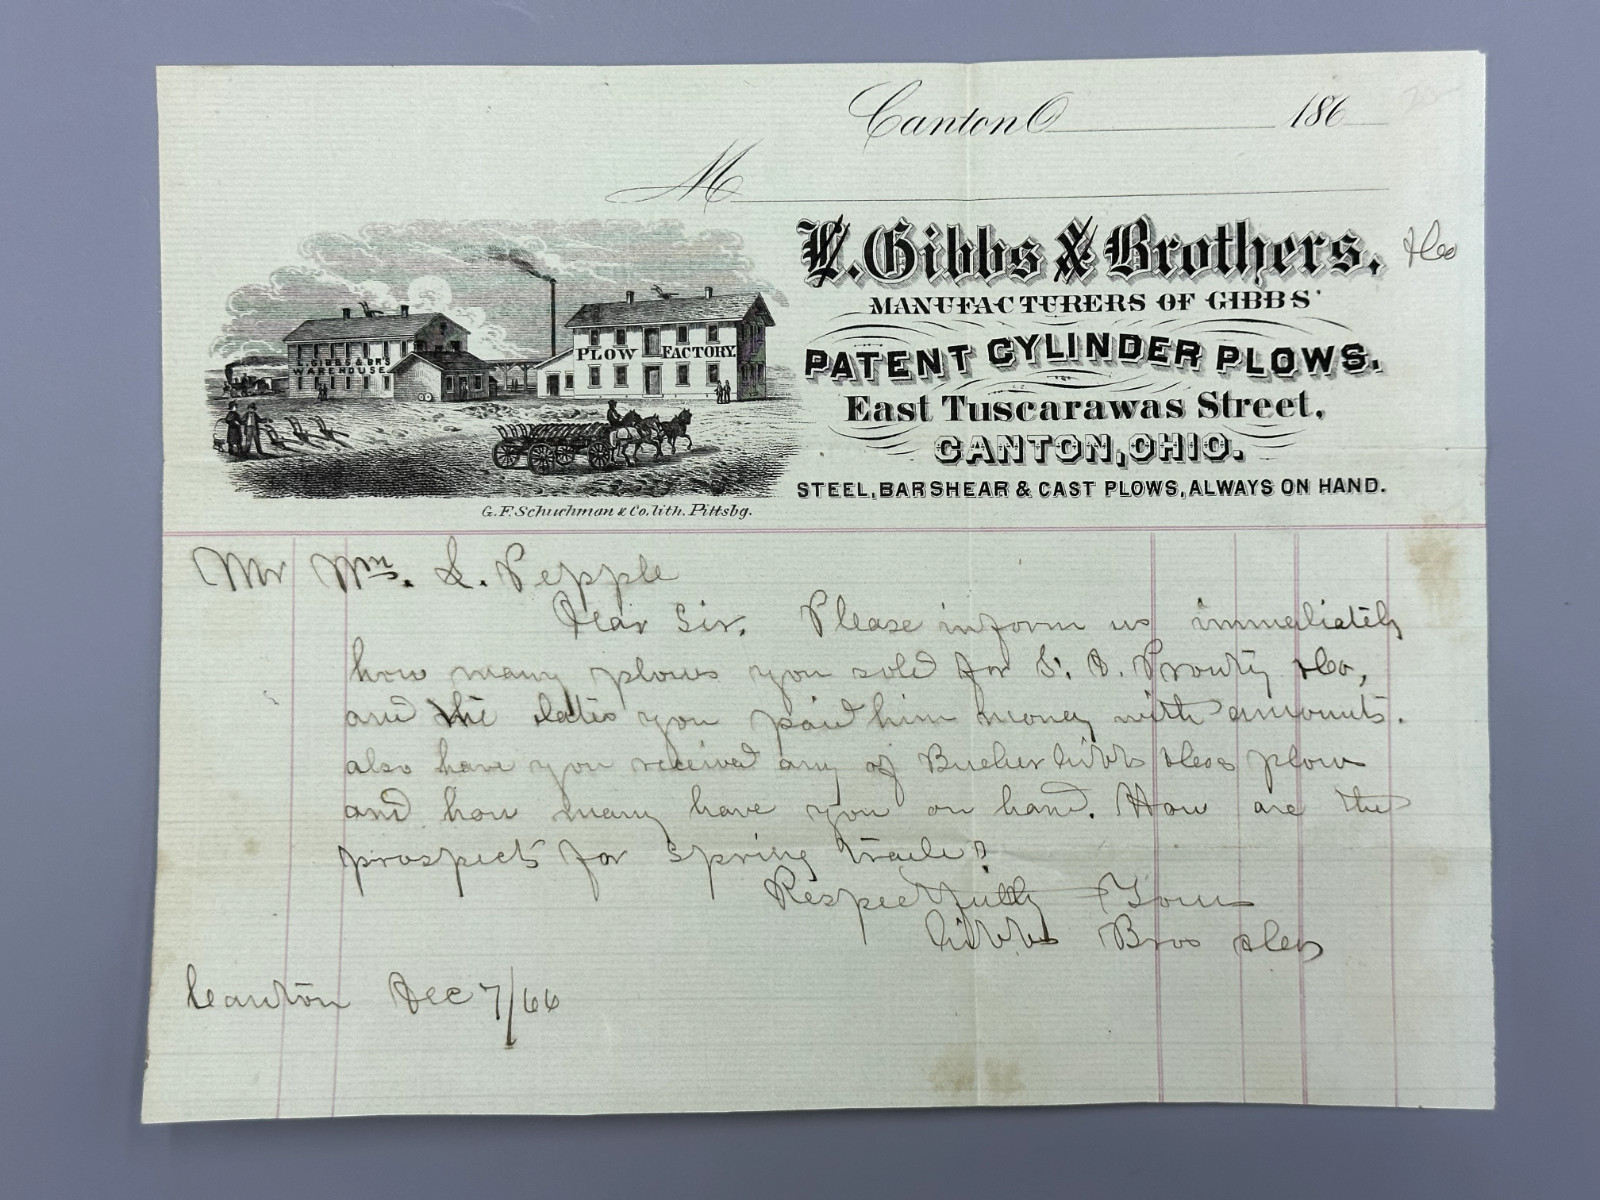 Canton O 186
M
L. Gibbs & Brothers, &Co
MANUFACTURERS OF GIBBS'
PATENT CYLINDER PLOWS.
East Tuscarawas Street,
CANTON, OHIO.
STEEL, BARSHEAR & CAST PLOWS, ALWAYS ON HAND.
L. GIBBS & BR'S
WAREHOUSE
PLOW FACTORY.
G. F. Schuchman & Co. lith. Pittsbg.
Mr Wm. L. Pepple
Dear Sir. Please inform us immediately
how many plows you sold for S. B. Prouty &Co,
and the dates you paid him money with amounts.
also have you received any of Bucher Gibbs &Cos plow
and how many have you on hand. How are the
prospects for Spring trade?
Respectfully Yours
Gibbs Bros &Co
Canton Dec 7/66